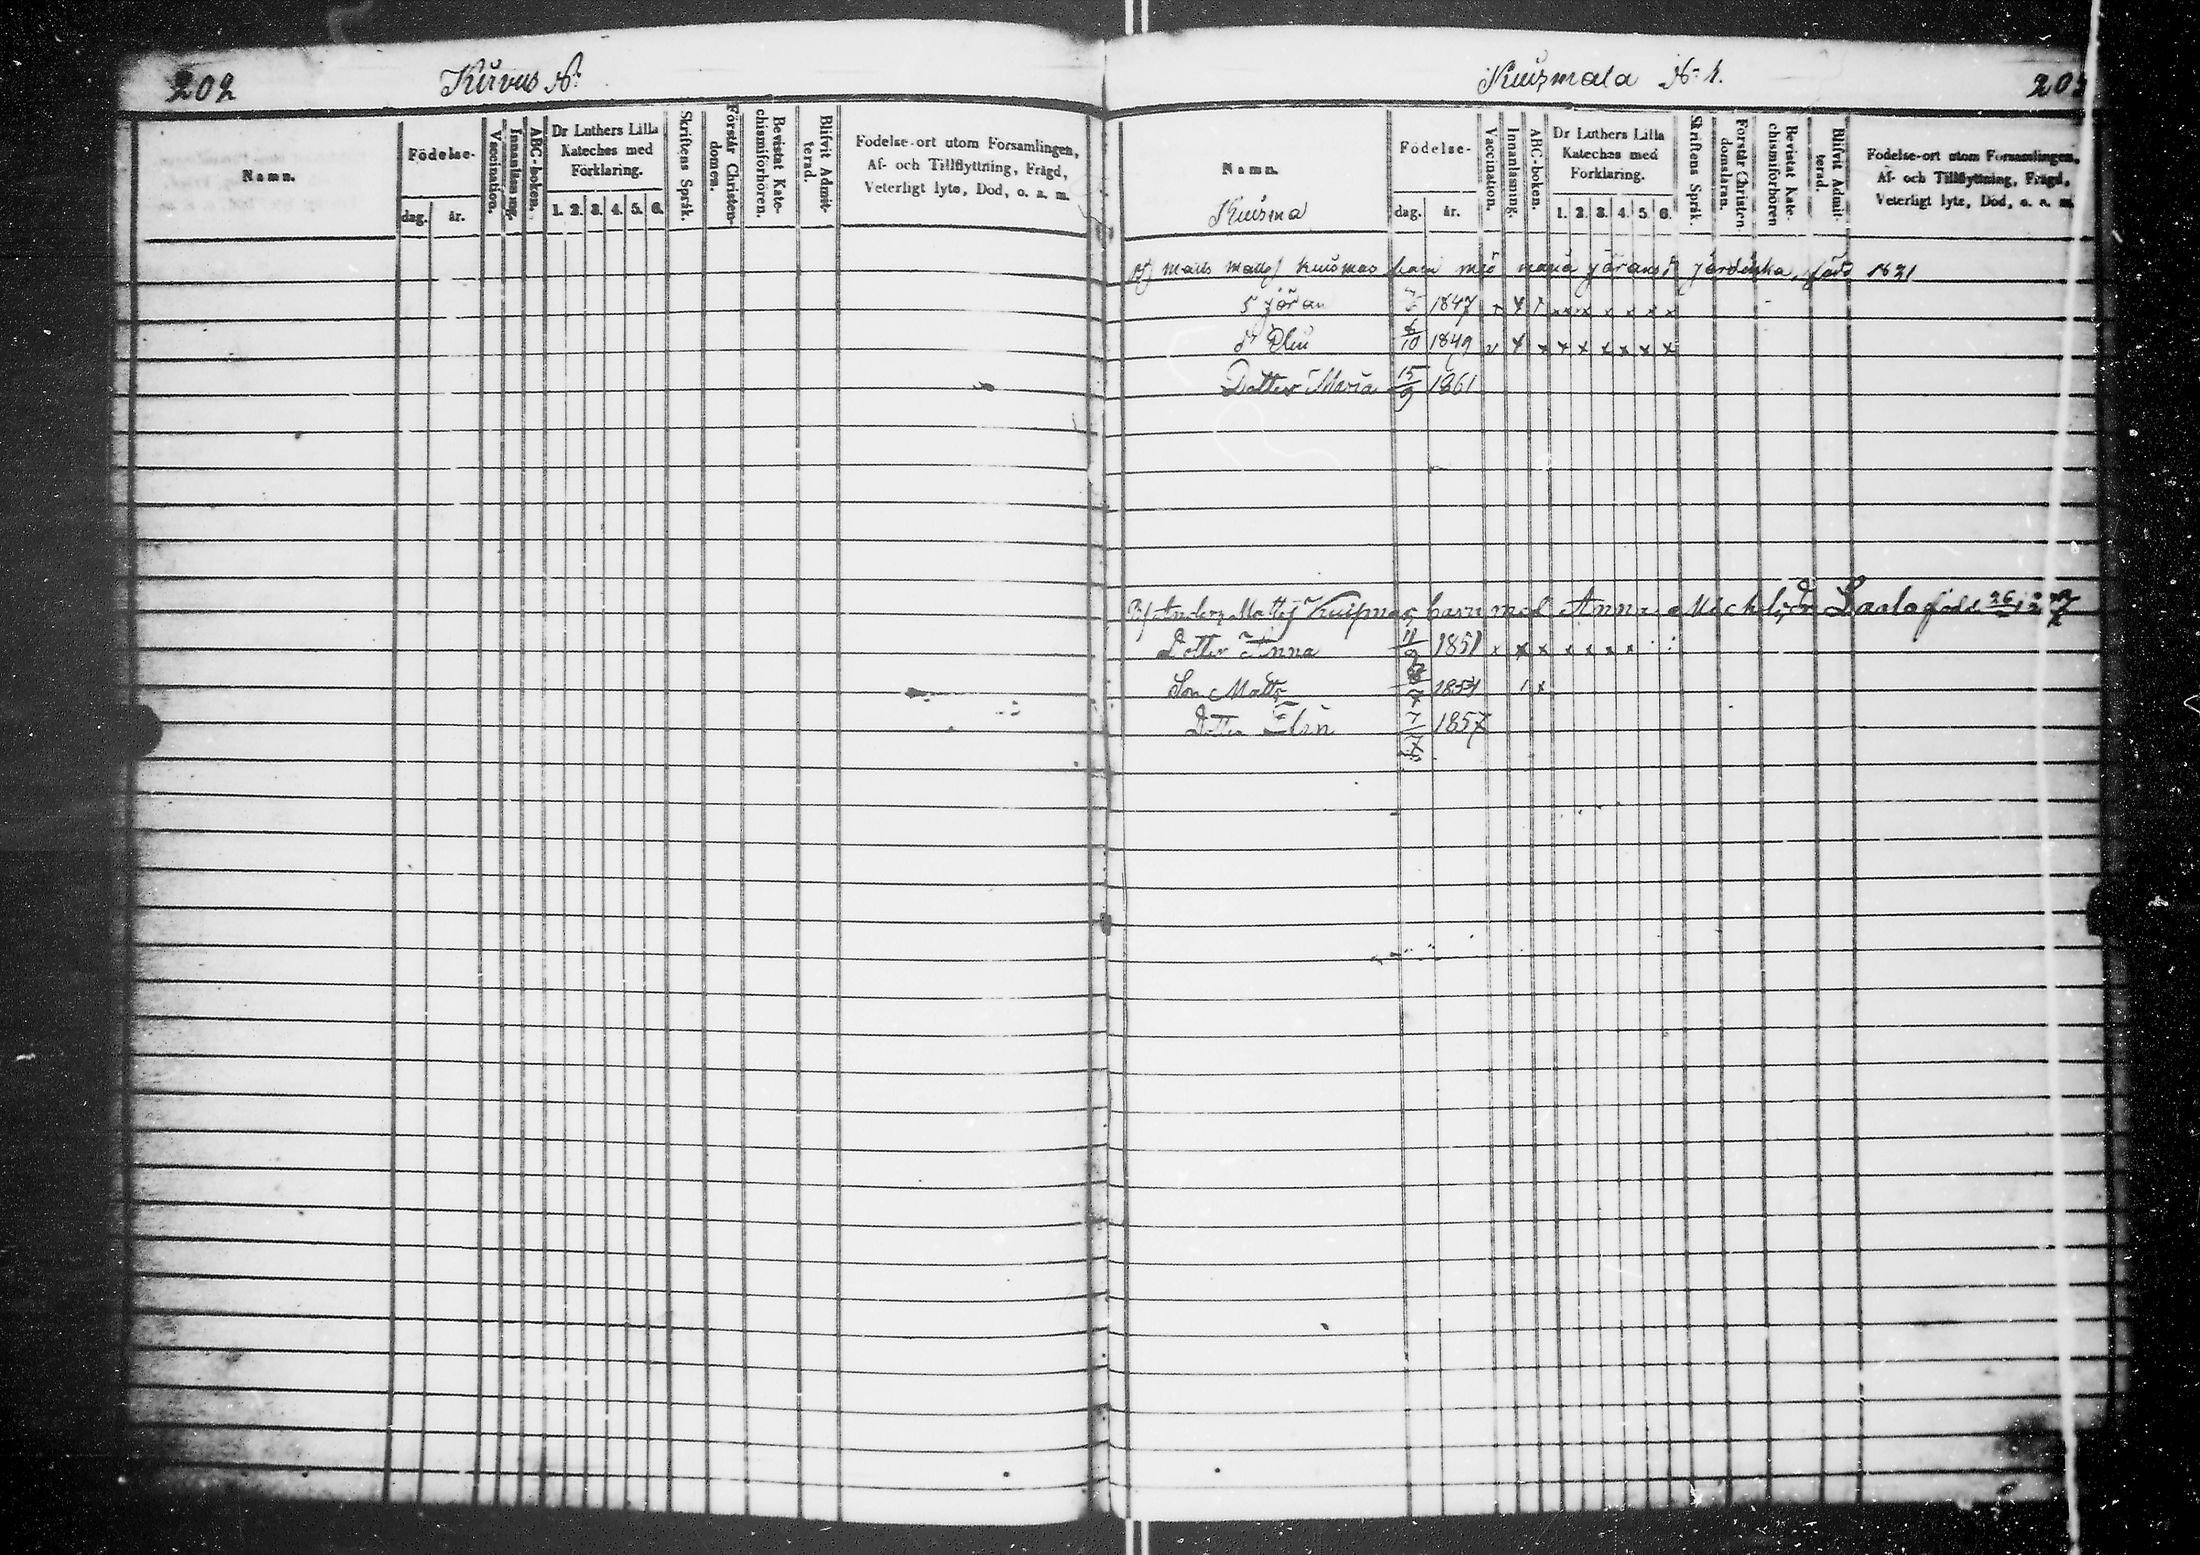 202
Kurvus N:
Namn.
Födelse-
dag.
år.
Vaccination.
Innanläsning.
ABC-boken.
Dr Luthers Lilla
Kateches med
Förklaring.
1. 2. 3. 4. 5. 6.
Skriftens Språk.
Förstår Christen-
domen.
Bevistat Kate-
chismiförhören.
Blifvit Admit-
terad.
Födelse-ort utom Församlingen,
Af- och Tillflyttning, Frägd,
Veterligt lyte, Död, o. s. m.
Kuismala N:1.
Namn.
Kuisma
Födelse-
dag.
år.
Vaccination.
Innanläsning.
ABC-boken.
Dr Luthers Lilla
Kateches med
Förklaring.
1. 2. 3. 4. 5. 6.
Skriftens Språk.
Förstår Christen-
domsläran.
Bevistat Kate-
chismiförhören
Blifvit Admit-
terad.
Födelse-ort utom Församlingen,
Af- och Tillflyttning, Frägd,
Veterligt lyte, Död, o. s. m.
Matts Matts Kuismas barn med Maria Jöransdr född 1821
S Jöran 1847 x x x x x x x x x
dr Elin 6/10 1849 x x x x x x x x x
Dotter Maria 15/9 1861
Anders Mattsj Kuismas barn med Anna Michelsdr Laala född 26/12
Dotter Anna 11/9 1851 x x x x x x x
Son Matts 1854 x
Dotter Elin 1857